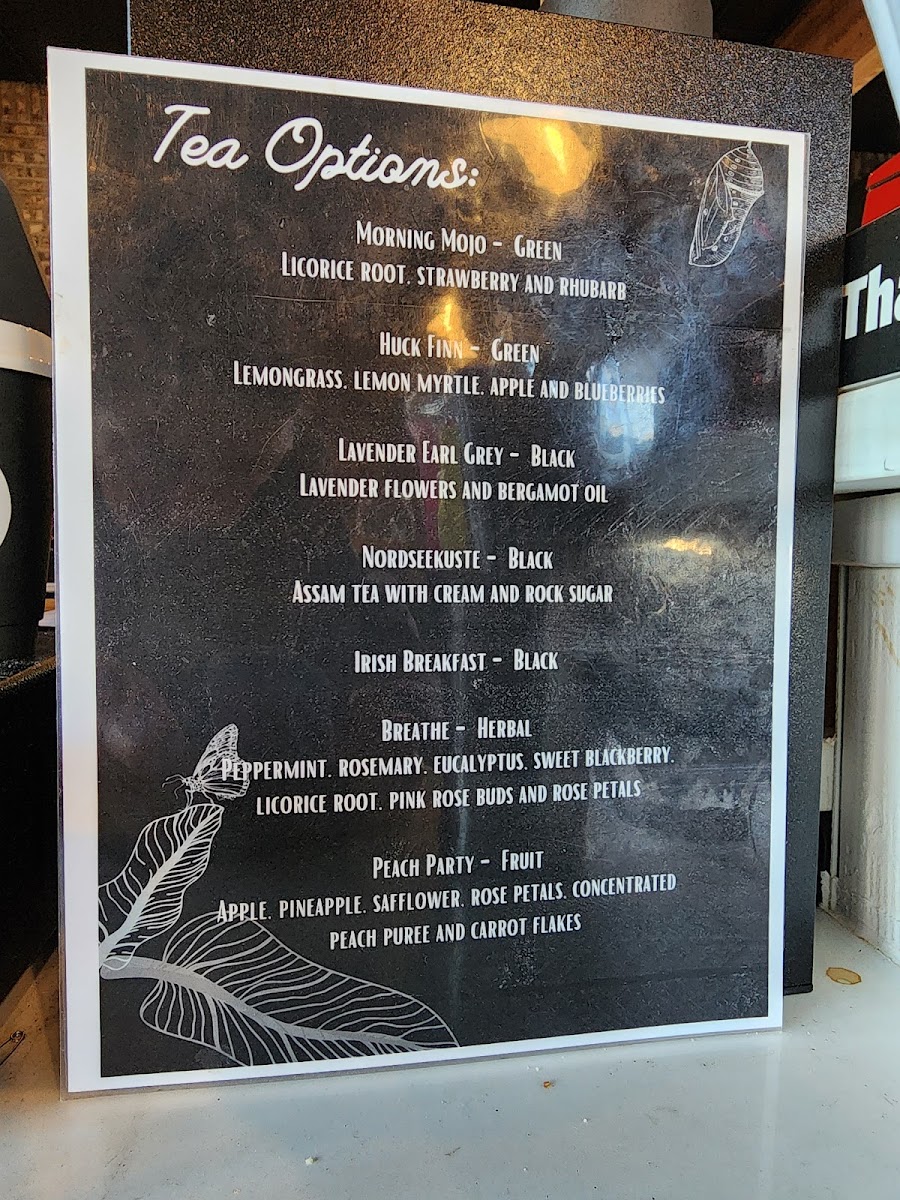 Tea Options:
MORNING MOJO - GREEN
LICORICE ROOT, STRAWBERRY AND RHUBARB
HUCK FINN - GREEN
LEMONGRASS, LEMON MYRTLE, APPLE AND BLUEBERRIES
LAVENDER EARL GREY - BLACK
LAVENDER FLOWERS AND BERGAMOT OIL
NORDSEEKUSTE - BLACK
ASSAM TEA WITH CREAM AND ROCK SUGAR
IRISH BREAKFAST - BLACK
BREATHE - HERBAL
PEPPERMINT, ROSEMARY, EUCALYPTUS, SWEET BLACKBERRY,
LICORICE ROOT, PINK ROSE BUDS AND ROSE PETALS
PEACH PARTY - FRUIT
APPLE, PINEAPPLE, SAFFLOWER, ROSE PETALS, CONCENTRATED
PEACH PUREE AND CARROT FLAKES